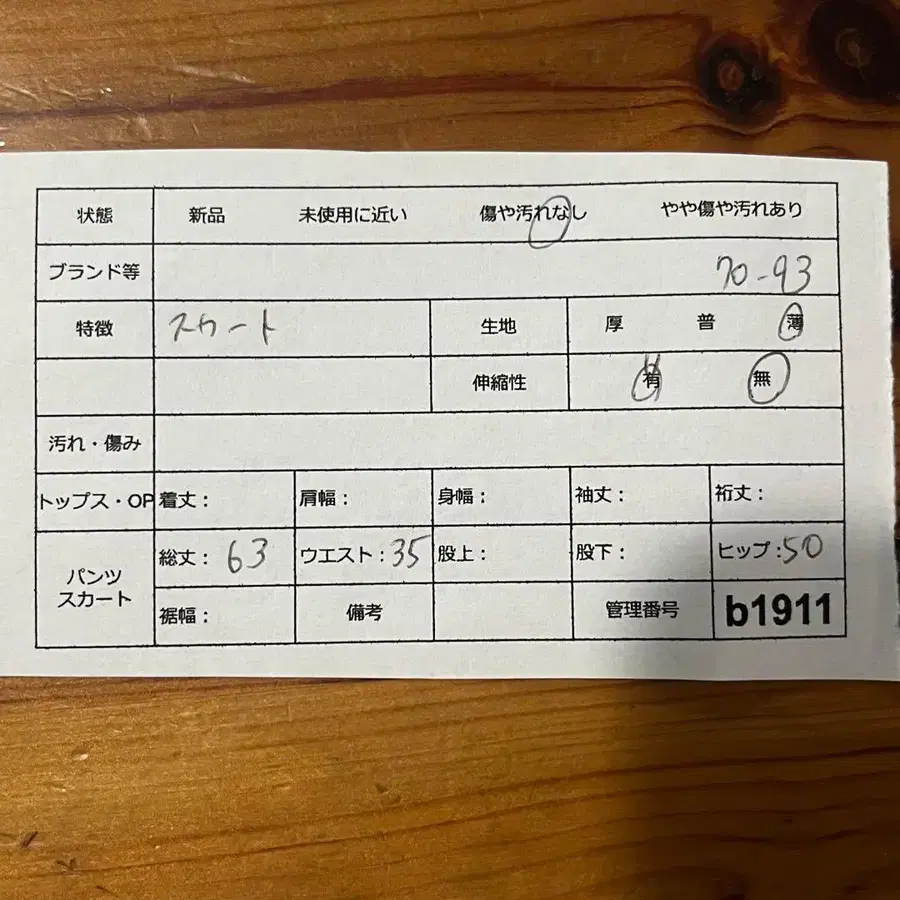 状態 新品 未使用に近い 傷や汚れなし やや傷や汚れあり
ブランド等 70-93
特徴 スカート 生地 厚 普 薄
伸縮性 有 無
汚れ・傷み
トップス・OP 着丈： 肩幅： 身幅： 袖丈： 裄丈：
パンツ
スカート
総丈：63 ウエスト：35 股上： 股下： ヒップ：50
裾幅： 備考 管理番号 b1911